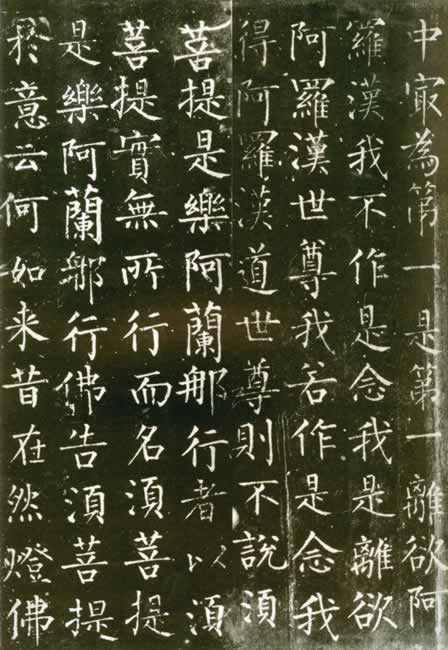 中㝡為第一是第一離欲阿
羅漢我不作是念我是離欲
阿羅漢世尊我若作是念我
得阿羅漢道世尊則不說須
菩提是樂阿蘭那行者以須
菩提實無所行而名須菩提
是樂阿蘭那行佛告須菩提
於意云何如来昔在然燈佛